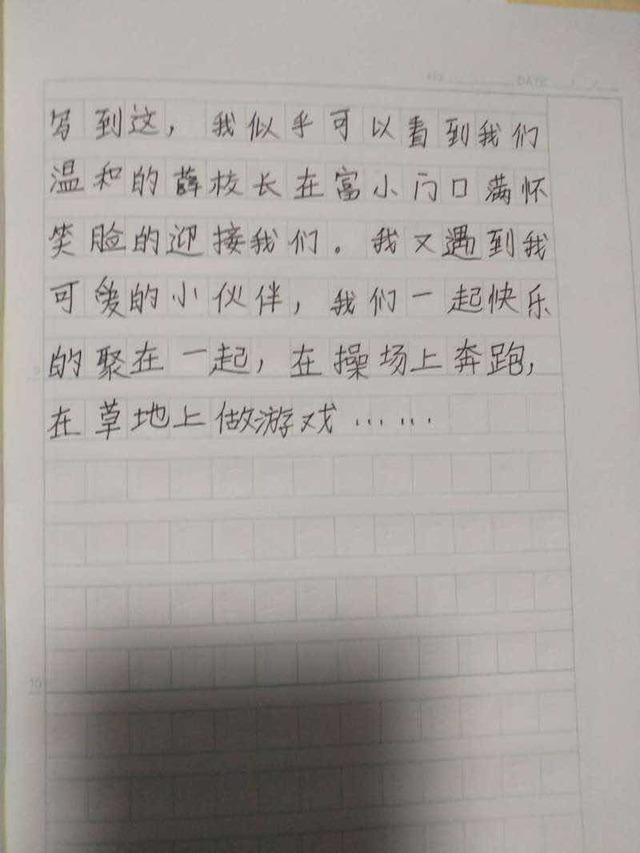 DATE
写到这，我似乎可以看到我们
温和的薛校长在富小门口满怀
笑脸的迎接我们。我又遇到我
可爱的小伙伴，我们一起快乐
的聚在一起，在操场上奔跑，
在草地上做游戏……